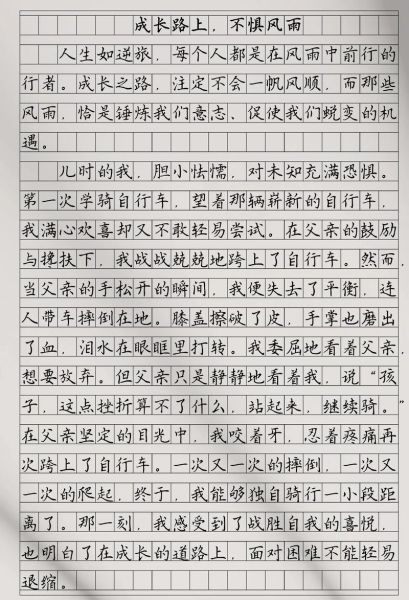 成长路上，不惧风雨
人生如逆旅，每个人都是在风雨中前行的
行者。成长之路，注定不会一帆风顺，而那些
风雨，恰是锤炼我们意志、促使我们蜕变的机
遇。
儿时的我，胆小怯懦，对未知充满恐惧。
第一次学骑自行车，望着那辆崭新的自行车，
我满心欢喜却又不敢轻易尝试。在父亲的鼓励
与搀扶下，我战战兢兢地跨上了自行车。然而，
当父亲的手松开的瞬间，我便失去了平衡，连
人带车摔倒在地。膝盖擦破了皮，手掌也磨出
了血，泪水在眼眶里打转。我委屈地看着父亲，
想要放弃。但父亲只是静静地看着我，说“孩
子，这点挫折算不了什么，站起来，继续骑。”
在父亲坚定的目光中，我咬着牙，忍着疼痛再
次跨上了自行车。一次又一次的摔倒，一次又
一次的爬起，终于，我能够独自骑行一小段距
离了。那一刻，我感受到了战胜自我的喜悦，
也明白了在成长的道路上，面对困难不能轻易
退缩。